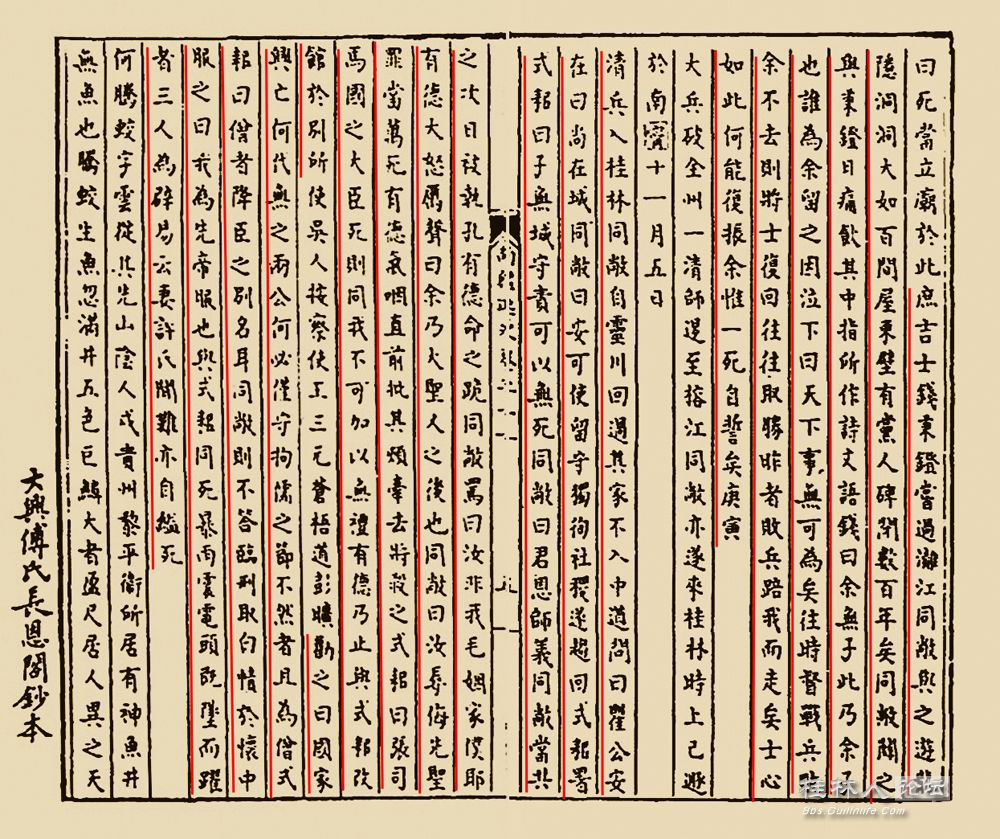 曰死當立廟於此庶吉士錢秉鐙嘗過灕江同敞與之遊
隱洞洞大如百間屋東壁有黨人碑閉數百年矣同敞闢之
與秉鐙日痛飲其中指所作詩文語錢曰余無子此乃余子
也誰為余留之因泣下曰天下事無可為矣往時督戰兵敗
余不去則將士復回往往取勝昨者敗兵踣我而走矣士心
如此何能復振余惟一死自誓矣庚寅
大兵破全州一清師退至榕江同敞亦遂來桂林時上已遯
於南寧十一月五日
清兵入桂林同敞自靈川回過其家不入中道問曰瞿公安
在曰尚在城同敞曰安可使留守獨徇社稷遂趨回式耜署
式耜曰子無城守責可以無死同敞曰君恩師義同敞當共
之次日被執孔有德命之跪同敞罵曰汝非我毛姻家僕耶
有德大怒厲聲曰余乃大聖人之後也同敞曰汝辱侮先聖
罪當萬死有德氣咽直前批其頰牽去將殺之式耜曰張司
馬國之大臣死則同我不可加以無禮有德乃止與式耜改
館於別所使吳人按察使王三元蒼梧道彭爌勸之曰國家
興亡何代無之兩公何必僅守拘儒之節不然者且為僧式
耜曰僧者降臣之別名耳同敞則不答臨刑取白幘於懷中
服之曰我為先帝服也與式耜同死暴雨震電頭既墜而躍
者三人為辟易云妻許氏聞難亦自縊死
何騰蛟字雲從其先山陰人戍貴州黎平衛所居有神魚井
無魚也騰蛟生魚忽滿井五色巨鱗大者盈尺居人異之天
大興傅氏長恩閣鈔本
桂林人论坛
Bbs.Guilinlife.com